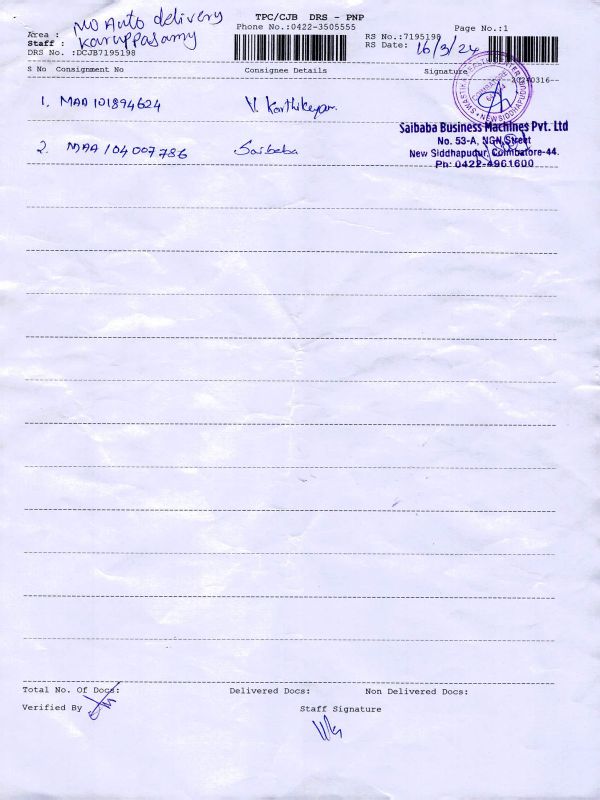 TPC/CJB DRS - PNP
Area : MO Auto delivery
Phone No.:0422-3505555
Page No.:1
Staff : Karuppasamy
RS No.:7195198
DRS No. :DCJB7195198
RS Date: 16/3/24
S No Consignment No Consignee Details Signature
20240316
1. MAA 101894624 V. Karthikeyan.
Saibaba Business Machines Pvt. Ltd
No. 53-A, NGN Street
2. MAA 104007786 Saibaba
New Siddhapudur, Coimbatore-44.
Ph: 0422-4961600
Total No. Of Docs: Delivered Docs: Non Delivered Docs:
Verified By
Staff Signature